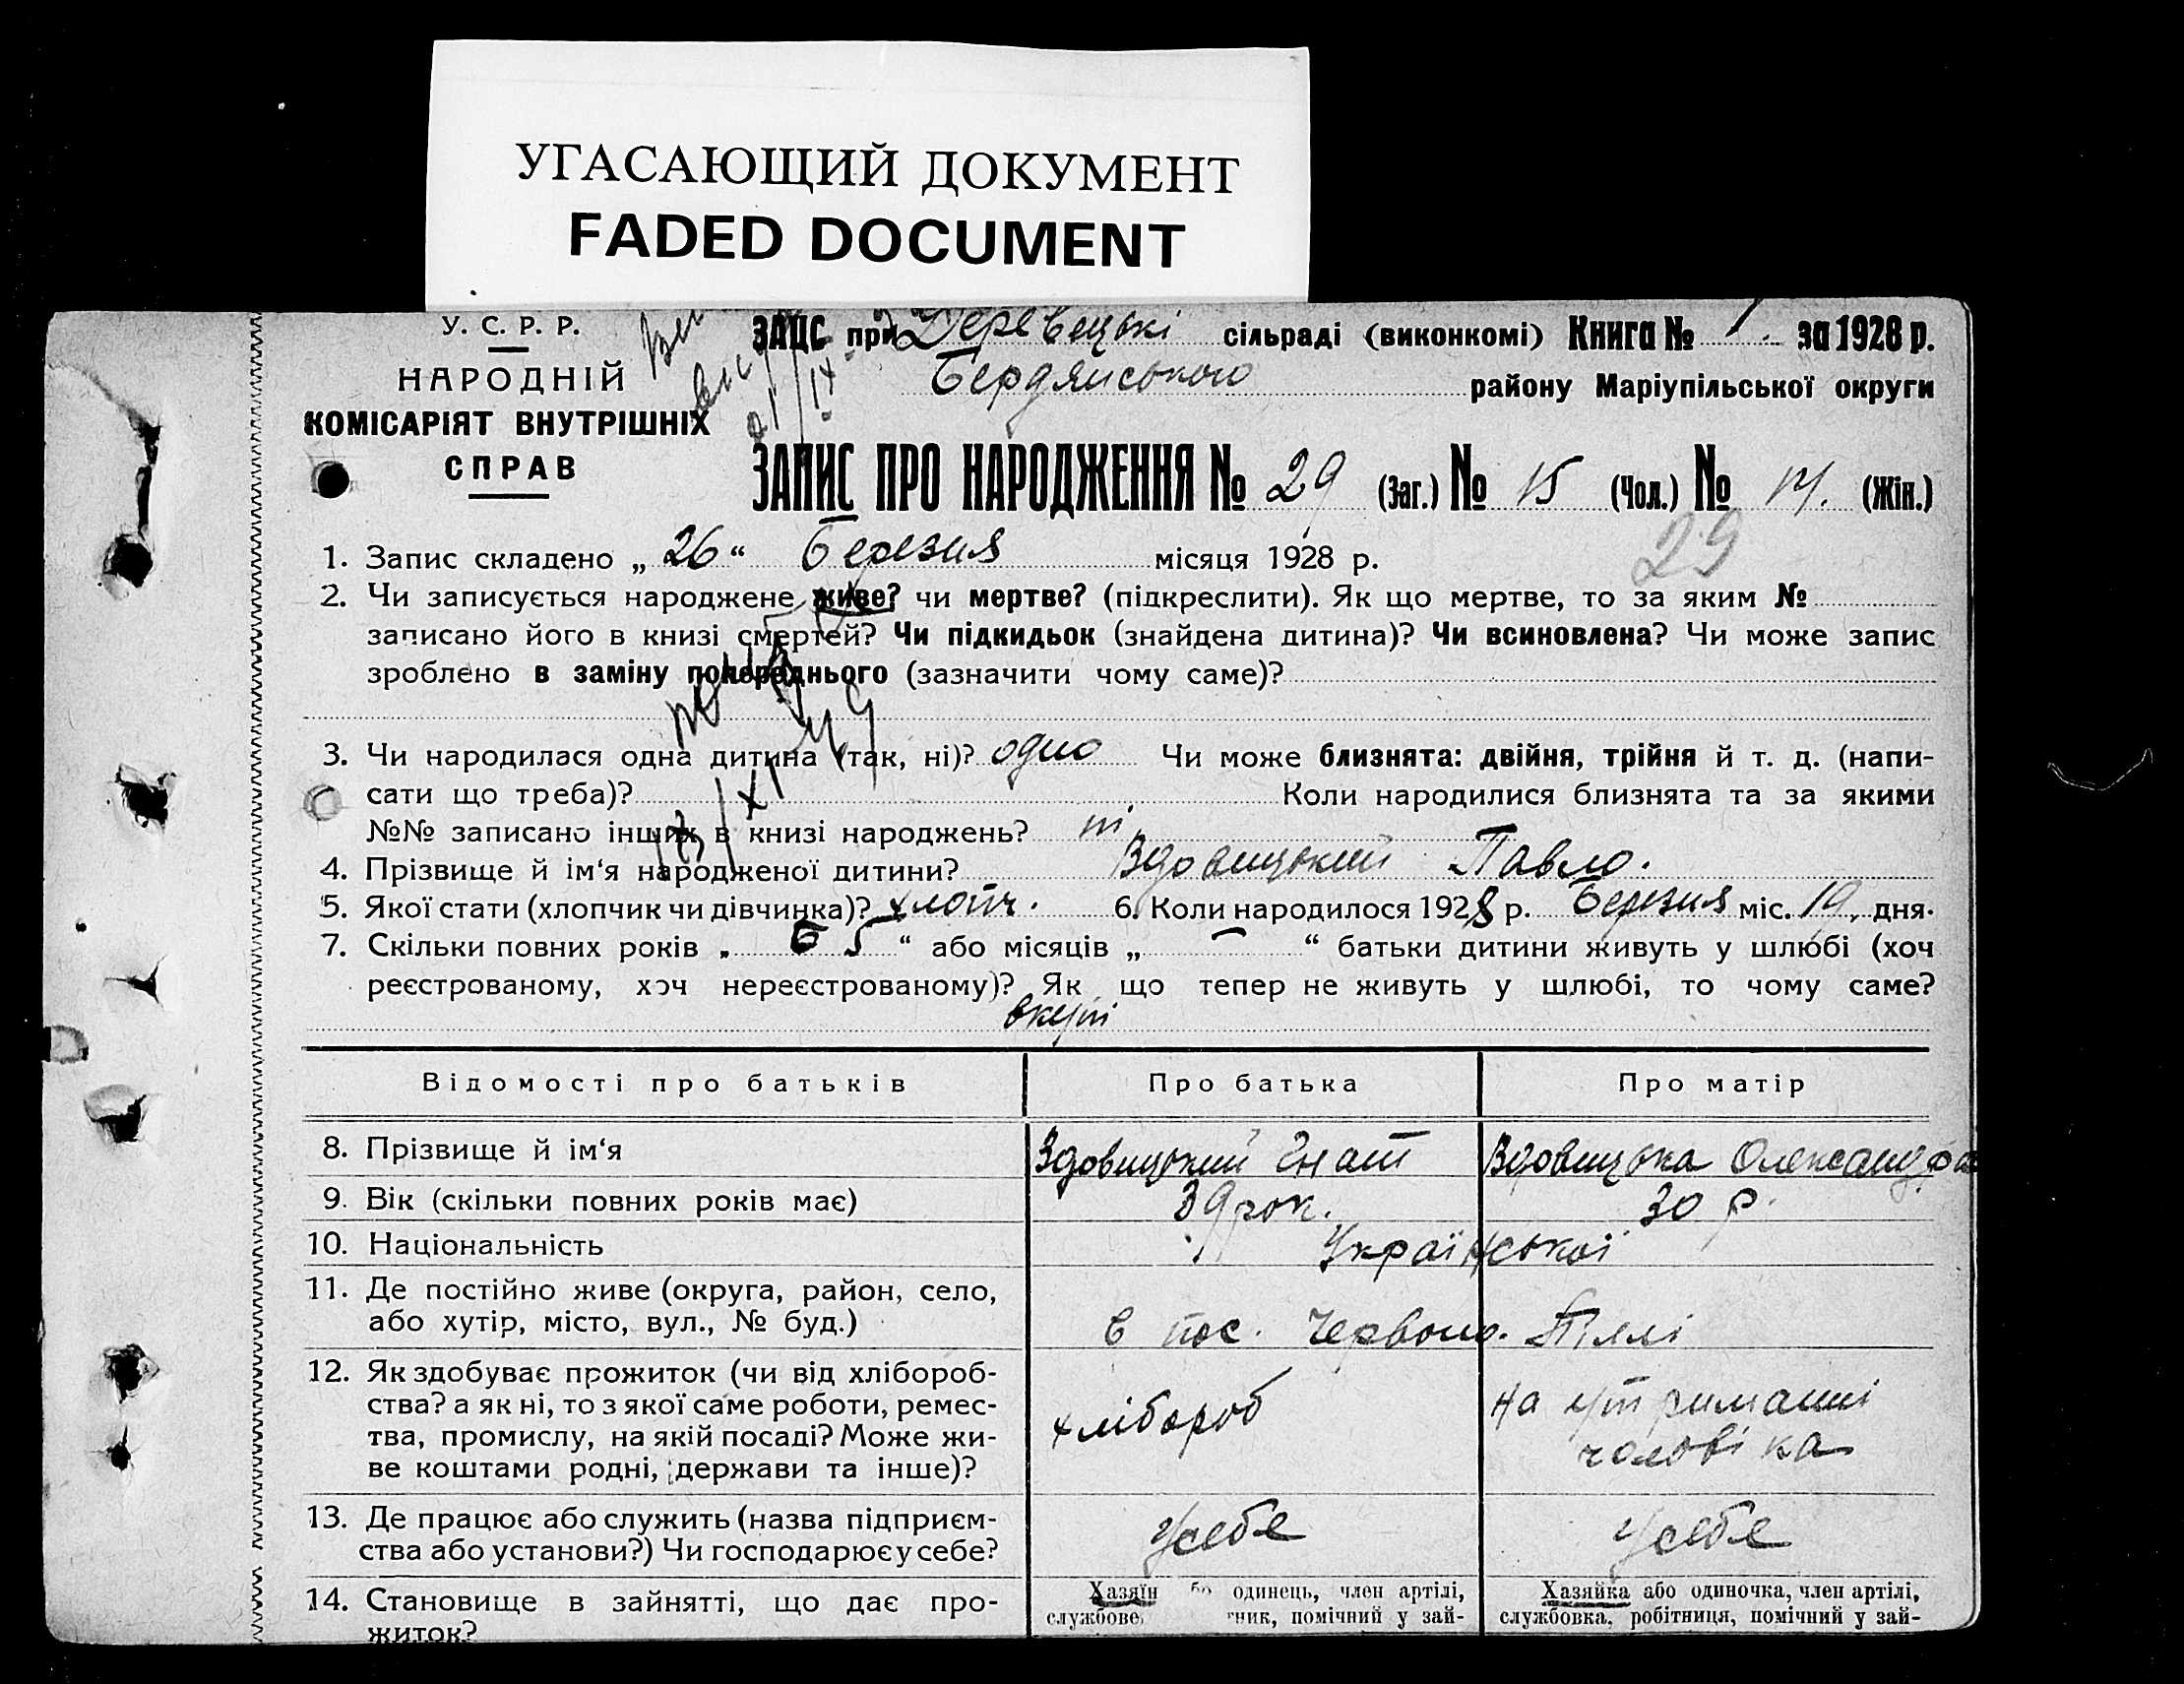 УГАСАЮЩИЙ ДОКУМЕНТ
FADED DOCUMENT
У. С. Р. Р.
НАРОДНІЙ
КОМІСАРІЯТ ВНУТРІШНІХ
СПРАВ
ЗАЦС при сільраді (виконкомі) Книга № 1. за 1928 р.
Бердянського району Маріупільської округи
ЗАПИС ПРО НАРОДЖЕННЯ № 29 (Заг.) № 15 (Чол.) № 14. (Жін.)
29
1. Запис складено „ 26 “ Березня місяця 1928 р.
2. Чи записується народжене живе? чи мертве? (підкреслити). Як що мертве, то за яким №
записано його в книзі смертей? Чи підкидьок (знайдена дитина)? Чи всиновлена? Чи може запис
зроблено в заміну попереднього (зазначити чому саме)?
3. Чи народилася одна дитина (так, ні)? одно Чи може близнята: двійня, трійня й т. д. (напи-
сати що треба)? Коли народилися близнята та за якими
№№ записано інших в книзі народжень? ні
4. Прізвище й ім‘я народженої дитини? Вдовицький Павло.
5. Якої стати (хлопчик чи дівчинка)? хлопч. 6. Коли народилося 1928 р. Березня міс. 19, дня.
7. Скільки повних років „ 5 “ або місяців „ – “ батьки дитини живуть у шлюбі (хоч
реєстрованому, хоч нереєстрованому)? Як що тепер не живуть у шлюбі, то чому саме?
вкупі
Відомості про батьків Про батька Про матір
8. Прізвище й ім‘я Вдовицький Гнат Вдовицька Олександра
9. Вік (скільки повних років має) 39 рок. 30 р.
10. Національність Української
11. Де постійно живе (округа, район, село,
або хутір, місто, вул., № буд.) в пос. Червоно. Піллі
12. Як здобуває прожиток (чи від хлібороб-
ства? а як ні, то з якої саме роботи, ремес-
тва, промислу, на якій посаді? Може жи-
ве коштами родні, держави та інше)?
хлібороб на утриманні
чоловіка
13. Де працює або служить (назва підприєм-
ства або установи?) Чи господарює у себе?
усебе усебе
14. Становище в зайнятті, що дає про-
житок?
Хазяїн одинець, член артілі,
службове ник, помічний у зай-
Хазяйка або одиночка, член артілі,
службовка, робітниця, помічний у зай-